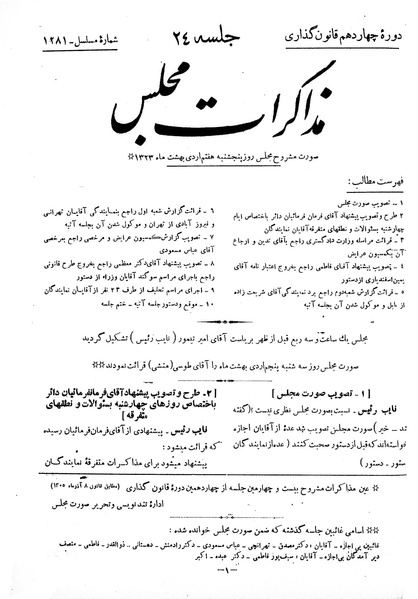 دورهٔ چهاردهم قانون گذاری
جلسه ۲۴
شمارهٔ مسلسل - ۱۲۸۱
مذاکرات مجلس
صورت مشروح مجلس روز پنجشنبه هفتم اردی بهشت ماه ۱۳۲۳ ※
فهرست مطالب :
۱ - تصویب صورت مجلس
۲ - طرح و تصویب پیشنهاد آقای فرمان فرمائیان دائر باختصاص ایام
چهارشنبه بسئوالات و نطقهای متفرقه آقایان نمایندگان
۳ - قرائت مراسله وزارت دادگستری راجع بآقای تدین و ارجاع
آن بکمیسیون عرایض
۴ - تصویب پیشنهاد آقای فاطمی راجع بخروج اعتبار نامه آقای
یمین اسفندیاری از دستور
۵ - قرائت گزارش شعبه دوم راجع برد نمایندگی آقای شریعت زاده
از بابل و موکول شدن آن بجلسه آتیه
۶ - قرائت گزارش شعبه اول راجع بنمایندگی آقایان تهرانی
و فیروز آبادی از تهران و موکول شدن آن بجلسه آتیه
۷ - تصویب گزارش کمیسیون عرایض و مرخصی راجع بمرخصی
آقای عباس مسعودی
۸ - تصویب پیشنهاد آقای دکتر معظمی راجع بخروج طرح قانونی
راجع باجرای مراسم سوگند آقایان وزراء از دستور
۹ - اجرای مراسم تحلیف از طرف ۲۳ نفر از آقایان نمایندگان
۱۰ - موقع و دستور جلسه آتیه - ختم جلسه
مجلس یك ساعت و سه ربع قبل از ظهر بریاست آقای امیر تیمور ( نایب رئیس ) تشکیل گردید
صورت مجلس روز سه شنبه پنجم اردی بهشت ماه را آقای طوسی (منشی) قرائت نمودند ※※
[ ۱ - تصویب صورت مجلس ]
نایب رئیس - نسبت بصورت مجلس نظری نیست؟ (گفته
شد - خیر) صورت مجلس تصویب شد عدهٔ از آقایان اجازه
خواسته‌اند که قبل از دستور صحبت کنند ( عده از نمایندگان
دستور - دستور )
[ ۲ - طرح و تصویب پیشنهاد آقای فرمانفرمائیان دائر
باختصاص روزهای چهارشنبه بسئوالات و نطقهای
متفرقه ]
نایب رئیس - پیشنهادی از آقای فرمانفرمائیان رسیده
که قرائت میشود :
پیشنهاد میشود برای مذاکرات متفرقه نمایندگان
※ عین مذاکرات مشروح بیست و چهارمین جلسه از چهاردهمین دورهٔ قانون گذاری (مطابق قانون ۸ آذرماه ۱۳۰۵)
ادارهٔ تندنویسی و تحریر صورت مجلس
※※ اسامی غائبین جلسه گذشته که ضمن صورت مجلس خوانده شده :
غائبین بی اجازه - آقایان : دکتر مصدق - تهرانچی - عباس مسعودی - دکتر رادمنش - دهستانی - ذوالقدر - فاطمی - منصف
دیر آمدگان بی اجازه - آقایان : سیف پور فاطمی - دکتر عبده - اکبر
- ۱ -